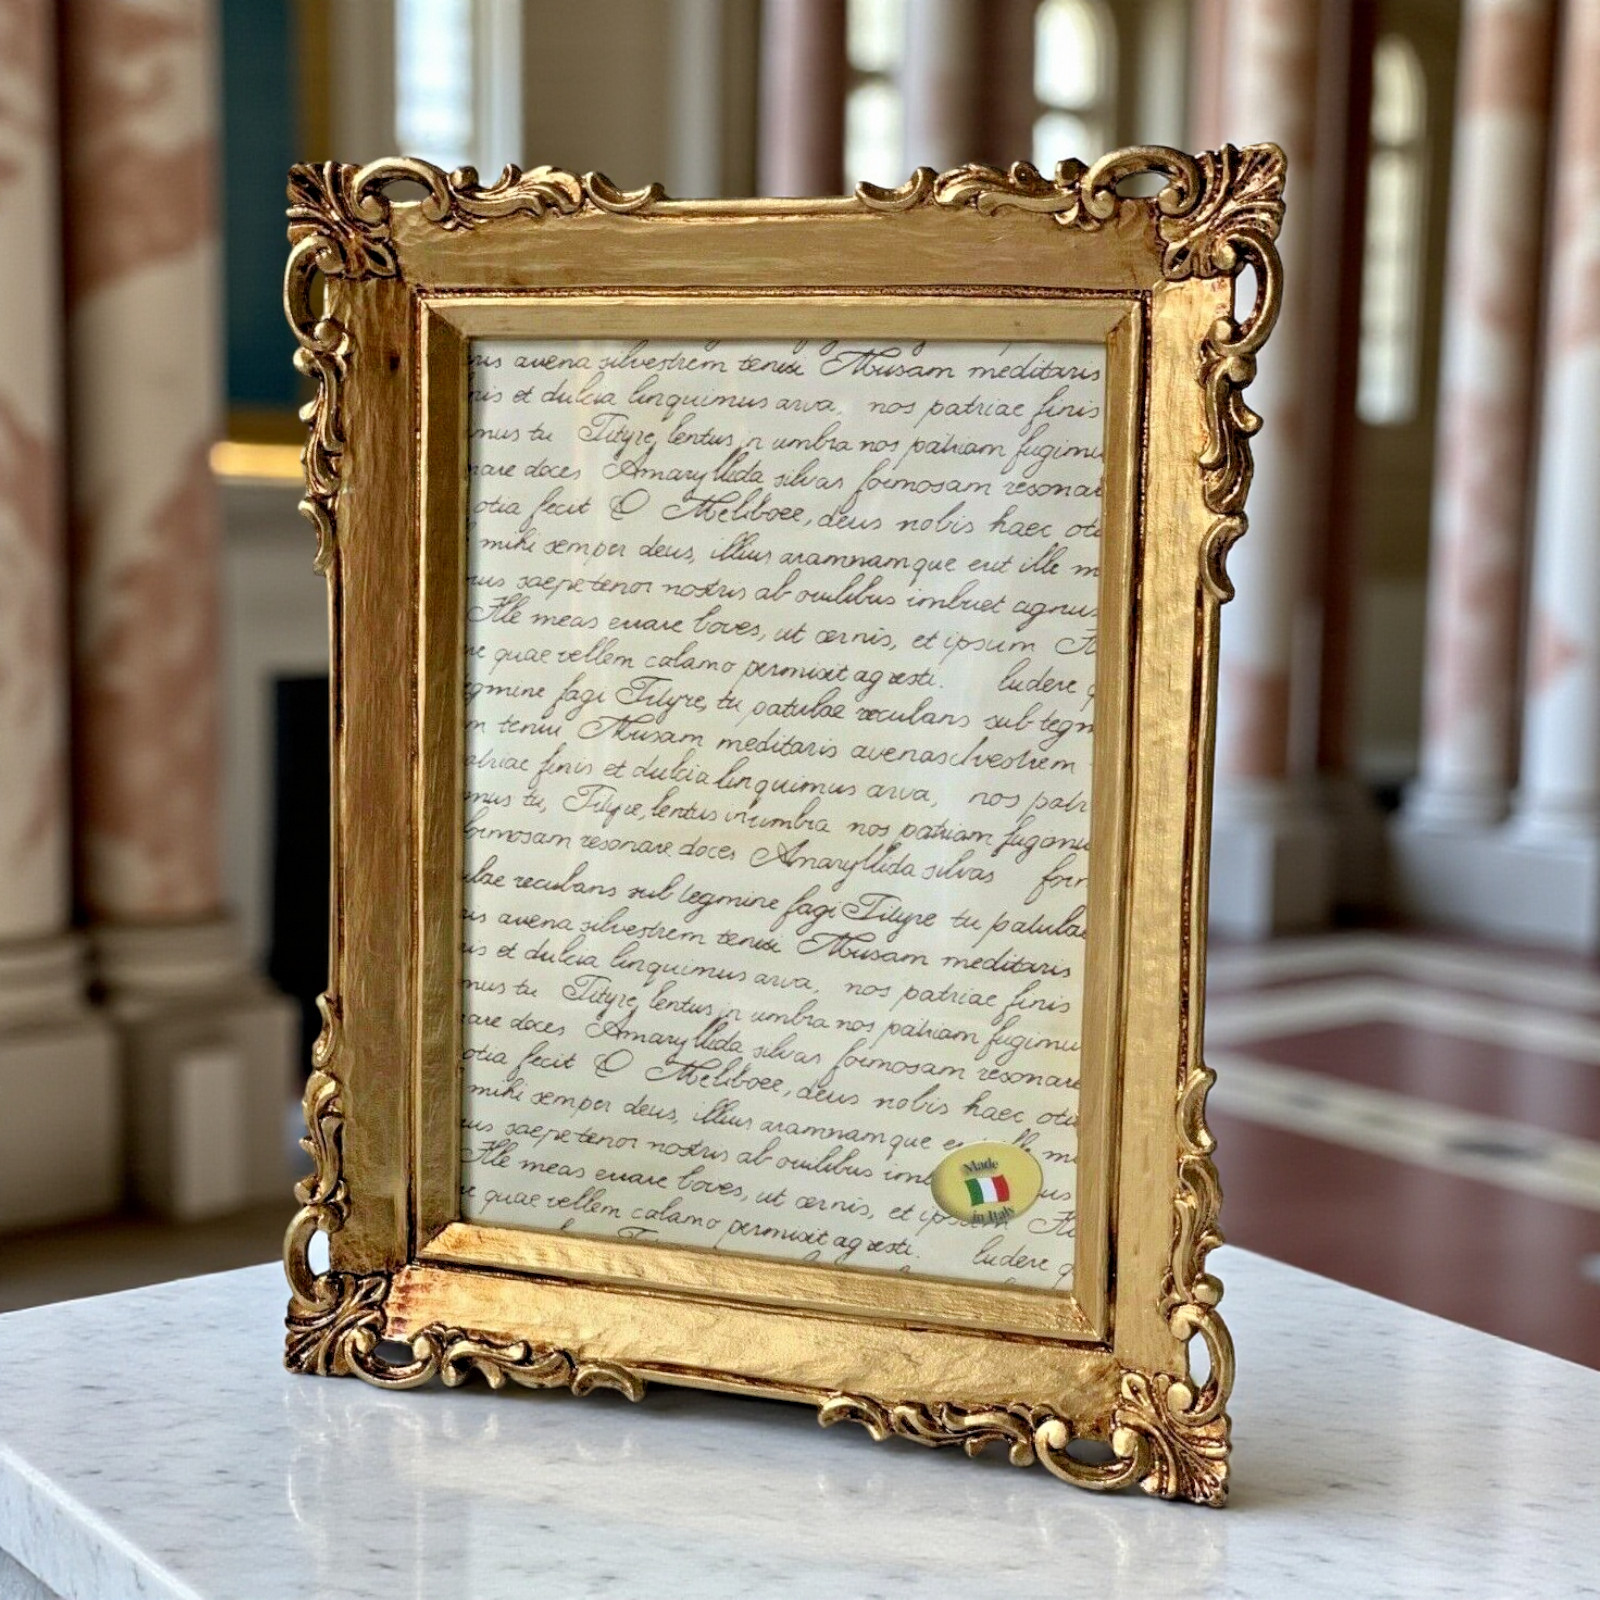 ris avena silvestrem tenui Musam meditaris
ris et dulcia linquimus arva, nos patriae finis
mus tu Tityre, lentus in umbra nos patriam fugimu
nare doces Amaryllida silvas formosam resonar
otia fecit O Meliboee, deus nobis haec oti
mihi semper deus, illius aramnamque erit ille m
rus saepe tener nostris ab ovilibus imbuet agnus
Ille meas errare boves, ut cernis, et ipsum Il
re quae vellem calamo permisit agresti. ludere q
egmine fagi Tityre, tu patulae recubans sub tegm
m tenui Musam meditaris avena silvestrem
atriae finis et dulcia linquimus arva, nos patr
mus tu, Tityre, lentus in umbra nos patriam fugimu
formosam resonare doces Amaryllida silvas form
ulae recubans sub tegmine fagi Tityre tu patulae
ris avena silvestrem tenui Musam meditaris
ris et dulcia linquimus arva, nos patriae finis
mus tu Tityre, lentus in umbra nos patriam fugimu
nare doces Amaryllida silvas formosam resonare
otia fecit O Meliboee, deus nobis haec otia
mihi semper deus, illius aramnamque e ille m
rus saepe tener nostris ab ovilibus imb us
Ille meas errare boves, ut cernis, et ipsum Il
re quae vellem calamo permisit agresti. ludere q
Made
in Italy